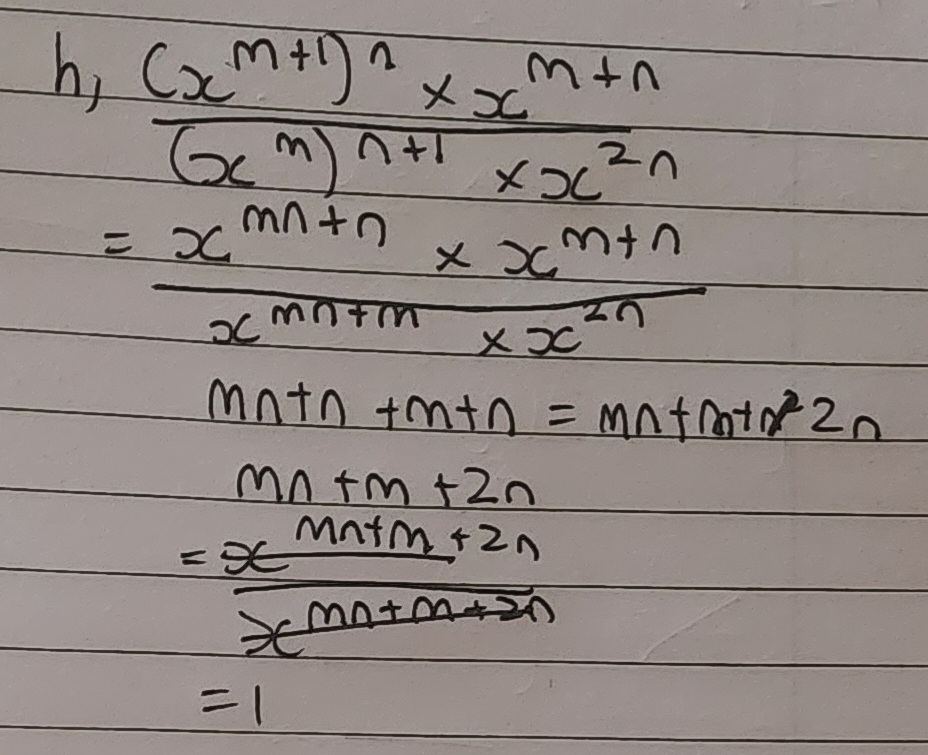 h, (x^{m+1})^n × x^{m+n}
(x^m)^{n+1} × x^{2n}
= x^{mn+n} × x^{m+n}
x^{mn+m} × x^{2n}
mn+n +m+n = mn+m+ 2n
mn +m +2n
= x^{mn+m+2n}
x^{mn+m+2n}
=1